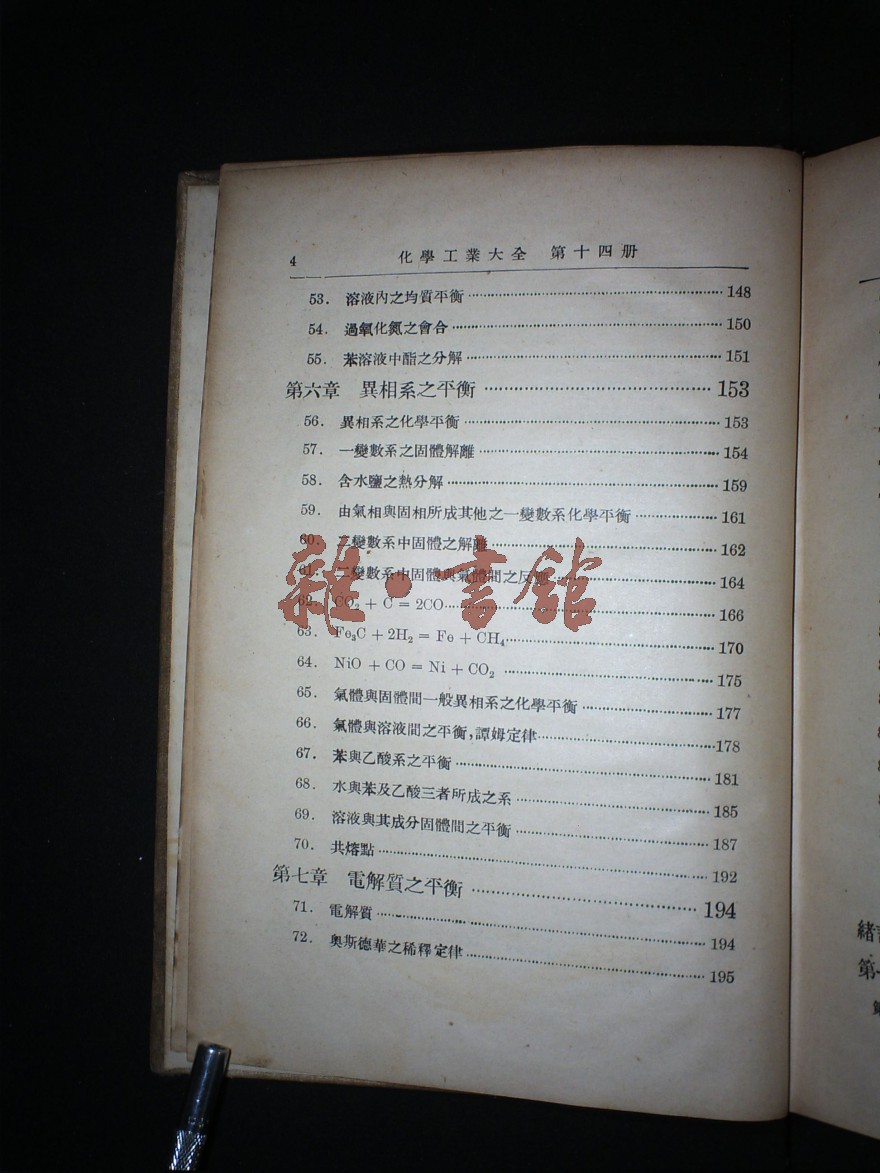 4 化學工業大全 第十四册
53. 溶液內之均質平衡 148
54. 過氧化氮之會合 150
55. 苯溶液中酯之分解 151
第六章 異相系之平衡 153
56. 異相系之化學平衡 153
57. 一變數系之固體解離 154
58. 含水鹽之熱分解 159
59. 由氣相與固相所成其他之一變數系化學平衡 161
60. 二變數系中固體之解離 162
61. 二變數系中固體與氣體間之反應 164
62. CO₂ + C = 2CO 166
63. Fe₃C + 2H₂ = Fe + CH₄ 170
64. NiO + CO = Ni + CO₂ 175
65. 氣體與固體間一般異相系之化學平衡 177
66. 氣體與溶液間之平衡,譚姆定律 178
67. 苯與乙酸系之平衡 181
68. 水與苯及乙酸三者所成之系 185
69. 溶液與其成分固體間之平衡 187
70. 共熔點 192
第七章 電解質之平衡 194
71. 電解質 194
72. 奧斯德華之稀釋定律 195
雜·書館
緒
第